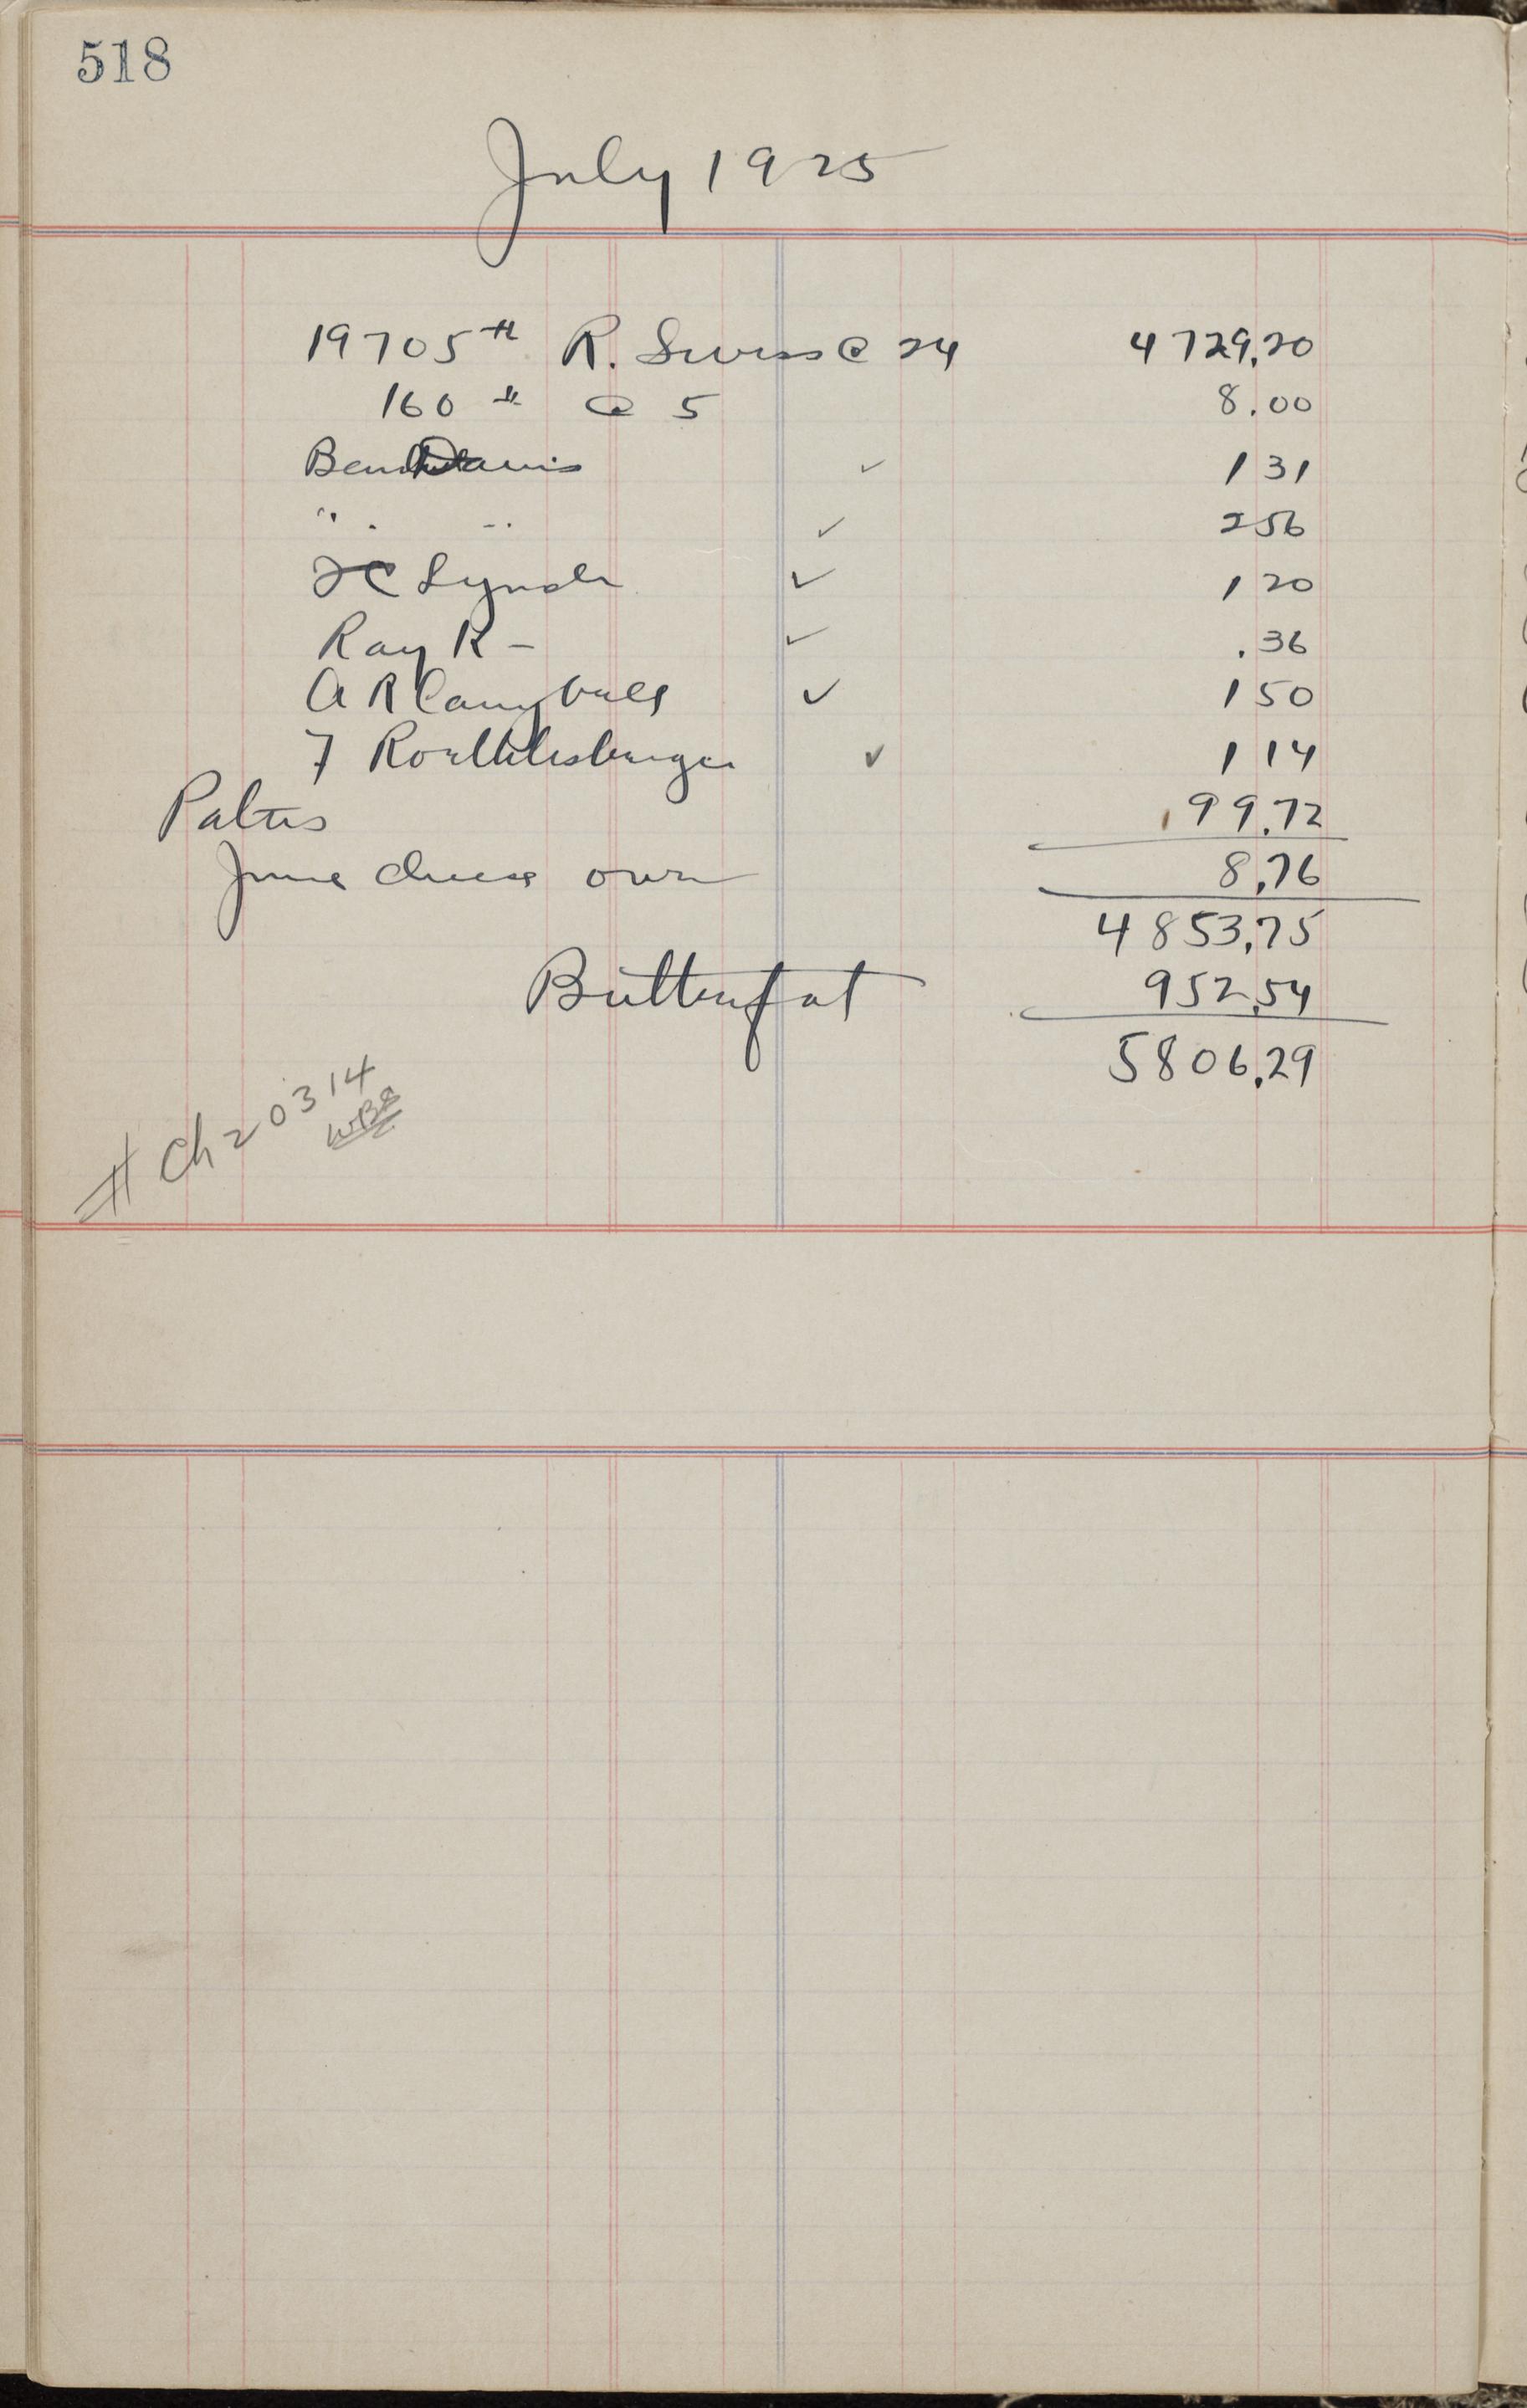 518
July 1925
19705 # R. Swiss @ 24 4729.20
160 # @ 5 8.00
Ben Davis ✓ 1 31
" " ✓ 2 56
Lynch ✓ 1 20
Ray R - ✓ .36
A R Campbell ✓ 1 50
F Roethlisberger ✓ 1 14
Patrs 99.72
June cheese over 8.76
4853.75
Butterfat 952.54
5806.29
# Ch 20314
WBS